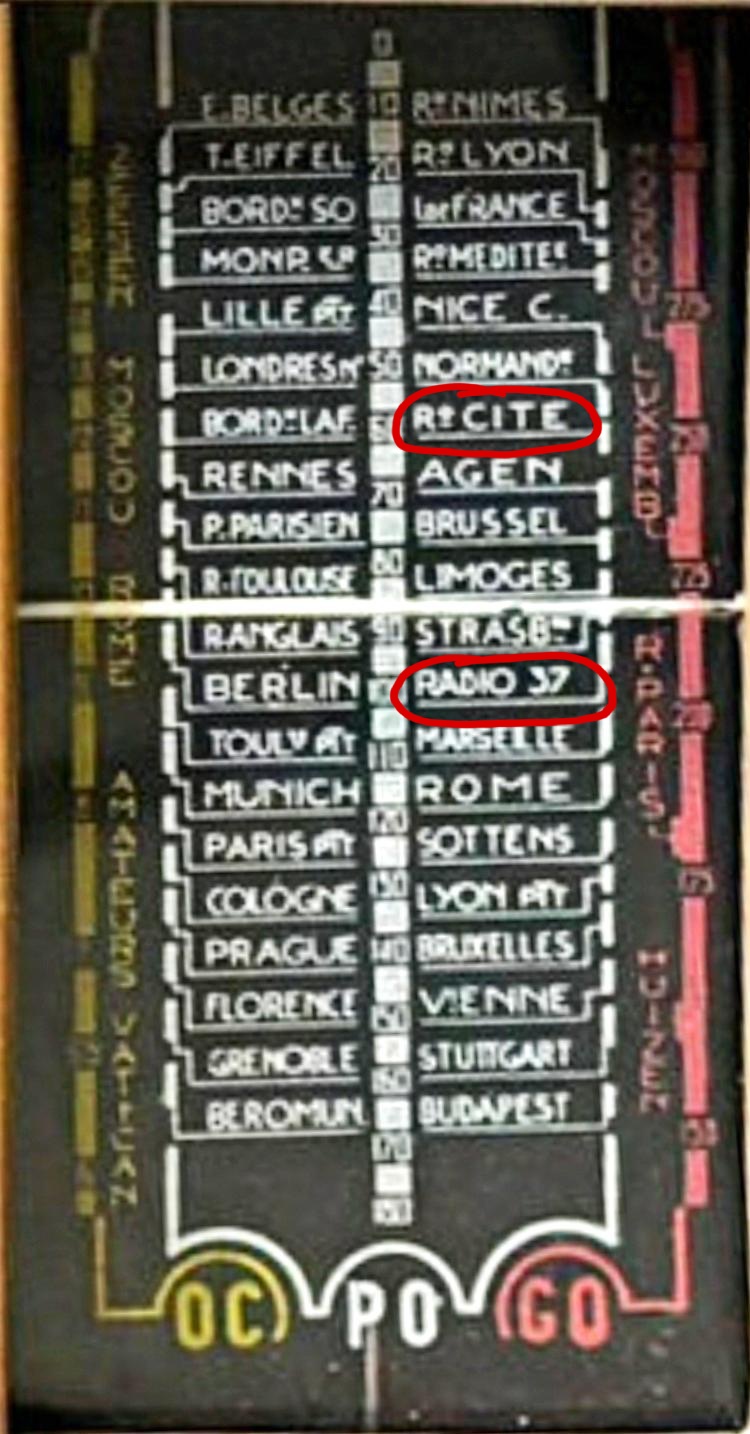 0
E.BELGES 10 Rº NIMES
T.EIFFEL 20 Rº LYON
BORDˣ SO I. de FRANCE
30
MONP. Rº MEDITEᴱ
LILLE PTT 40 NICE C.
LONDRES Nˡ 50 NORMANDᴱ
BORDˣ LAF. 60 Rº CITE
RENNES AGEN
70
P.PARISIEN BRUSSEL
R.TOULOUSE 80 LIMOGES
R.ANGLAIS 90 STRASBᴳ
BERLIN RADIO 37
TOULˢᴱ PTT 110 MARSEILLE
MUNICH ROME
PARIS PTT 120 SOTTENS
COLOGNE 130 LYON PTT
PRAGUE 140 BRUXELLES
FLORENCE 150 VIENNE
GRENOBLE STUTTGART
160
BEROMUN. BUDAPEST
170
180
ZEESEN MOSCOU ROME
AMATEURS VATICAN
MOSCOU LUXEMBᴳ
R.PARIS
HUIZEN
275
250
225
200
175
150
OC PO GO